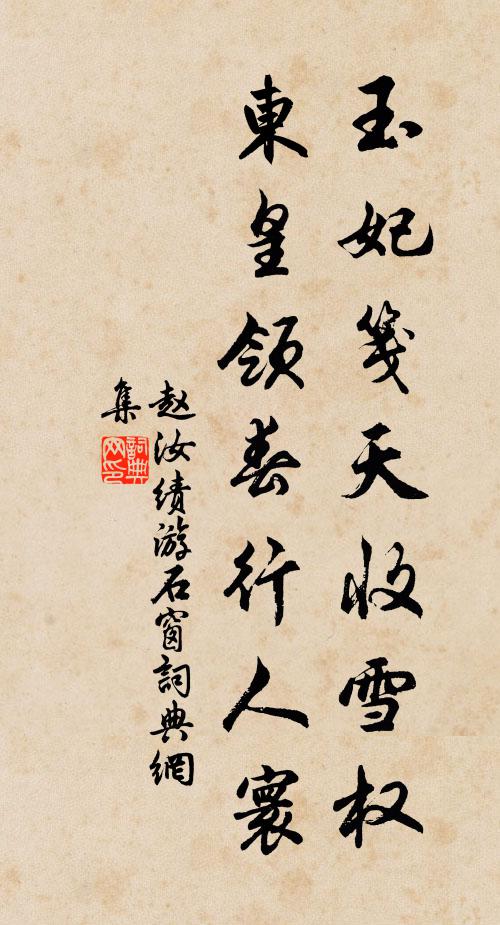 玉妃笺天收雪权
東皇領春行人寰
赵汝績游石窗詞典網
集
詞典网印